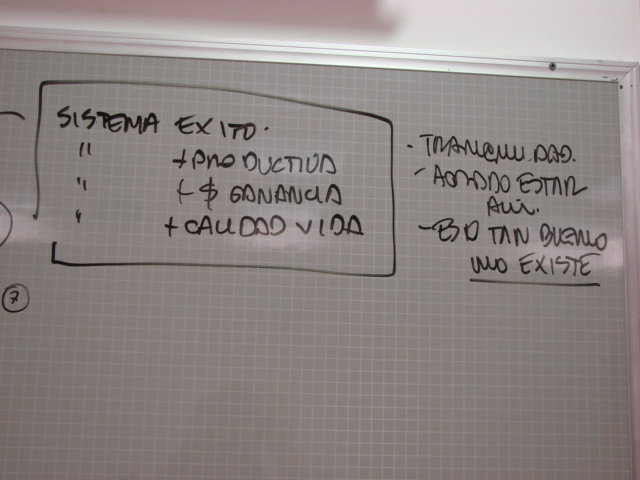 SISTEMA EXITO.
" +PRODUCTIVA
" +$ GANANCIA
" +CALIDAD VIDA
- TRANQUILIDAD.
- AGRADO ESTAR
ALLI.
- ESO TAN BUENO
NO EXISTE
7